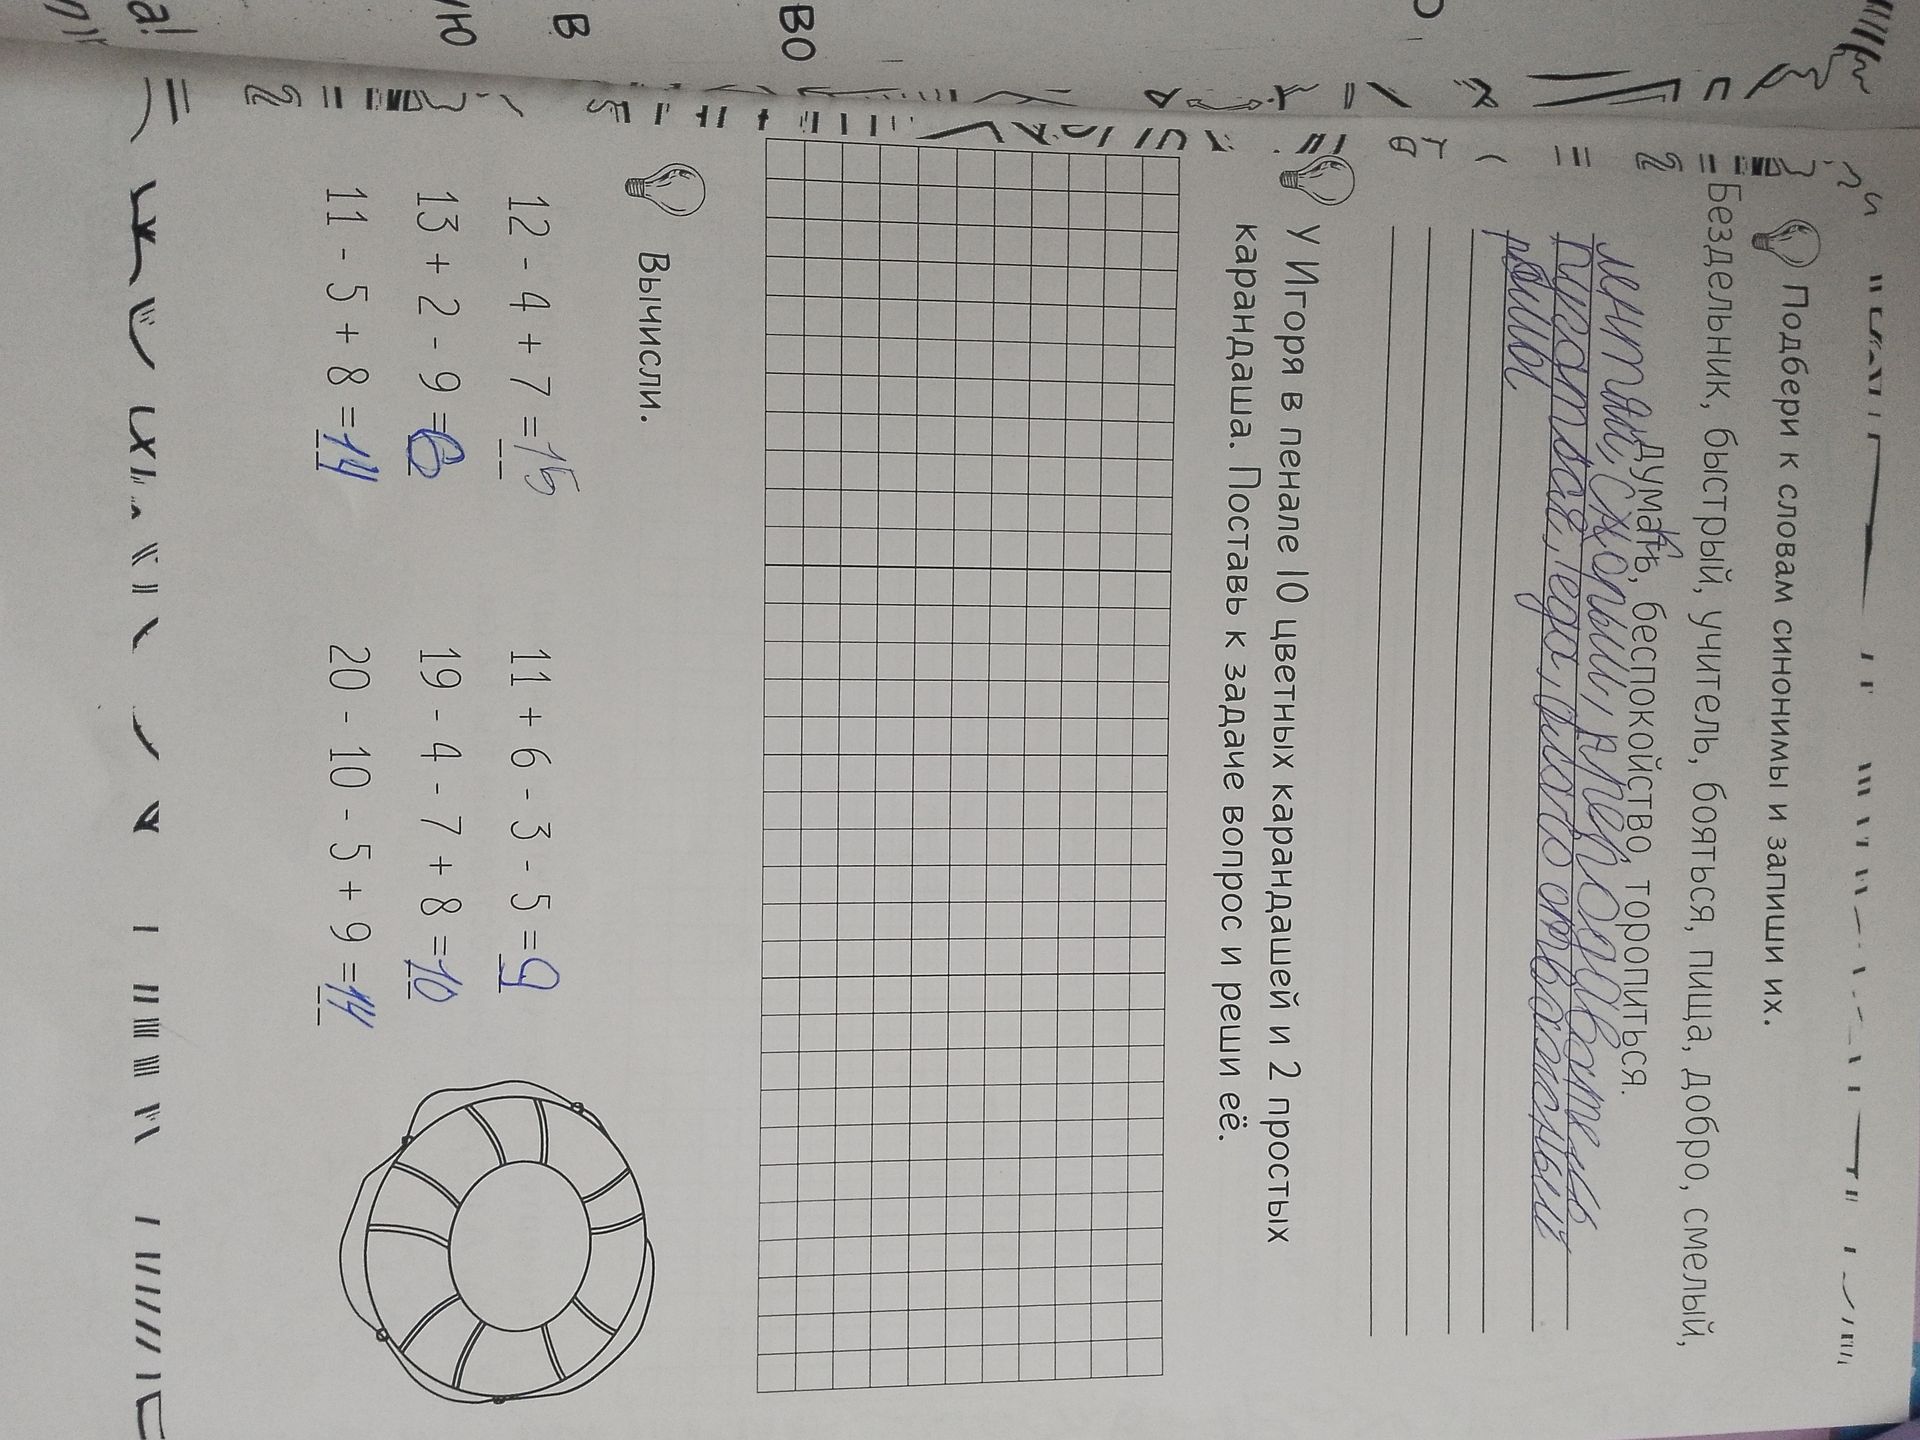 Подбери к словам синонимы и запиши их.
Бездельник, быстрый, учитель, бояться, пища, добро, смелый,
думать, беспокойство, торопиться.
лентяй, скорый, преподователь
еда,
У Игоря в пенале 10 цветных карандашей и 2 простых
карандаша. Поставь к задаче вопрос и реши её.
Вычисли.
12 - 4 + 7 = 15
11 + 6 - 3 - 5 = 9
13 + 2 - 9 = 6
19 - 4 - 7 + 8 = 10
11 - 5 + 8 = 14
20 - 10 - 5 + 9 = 14